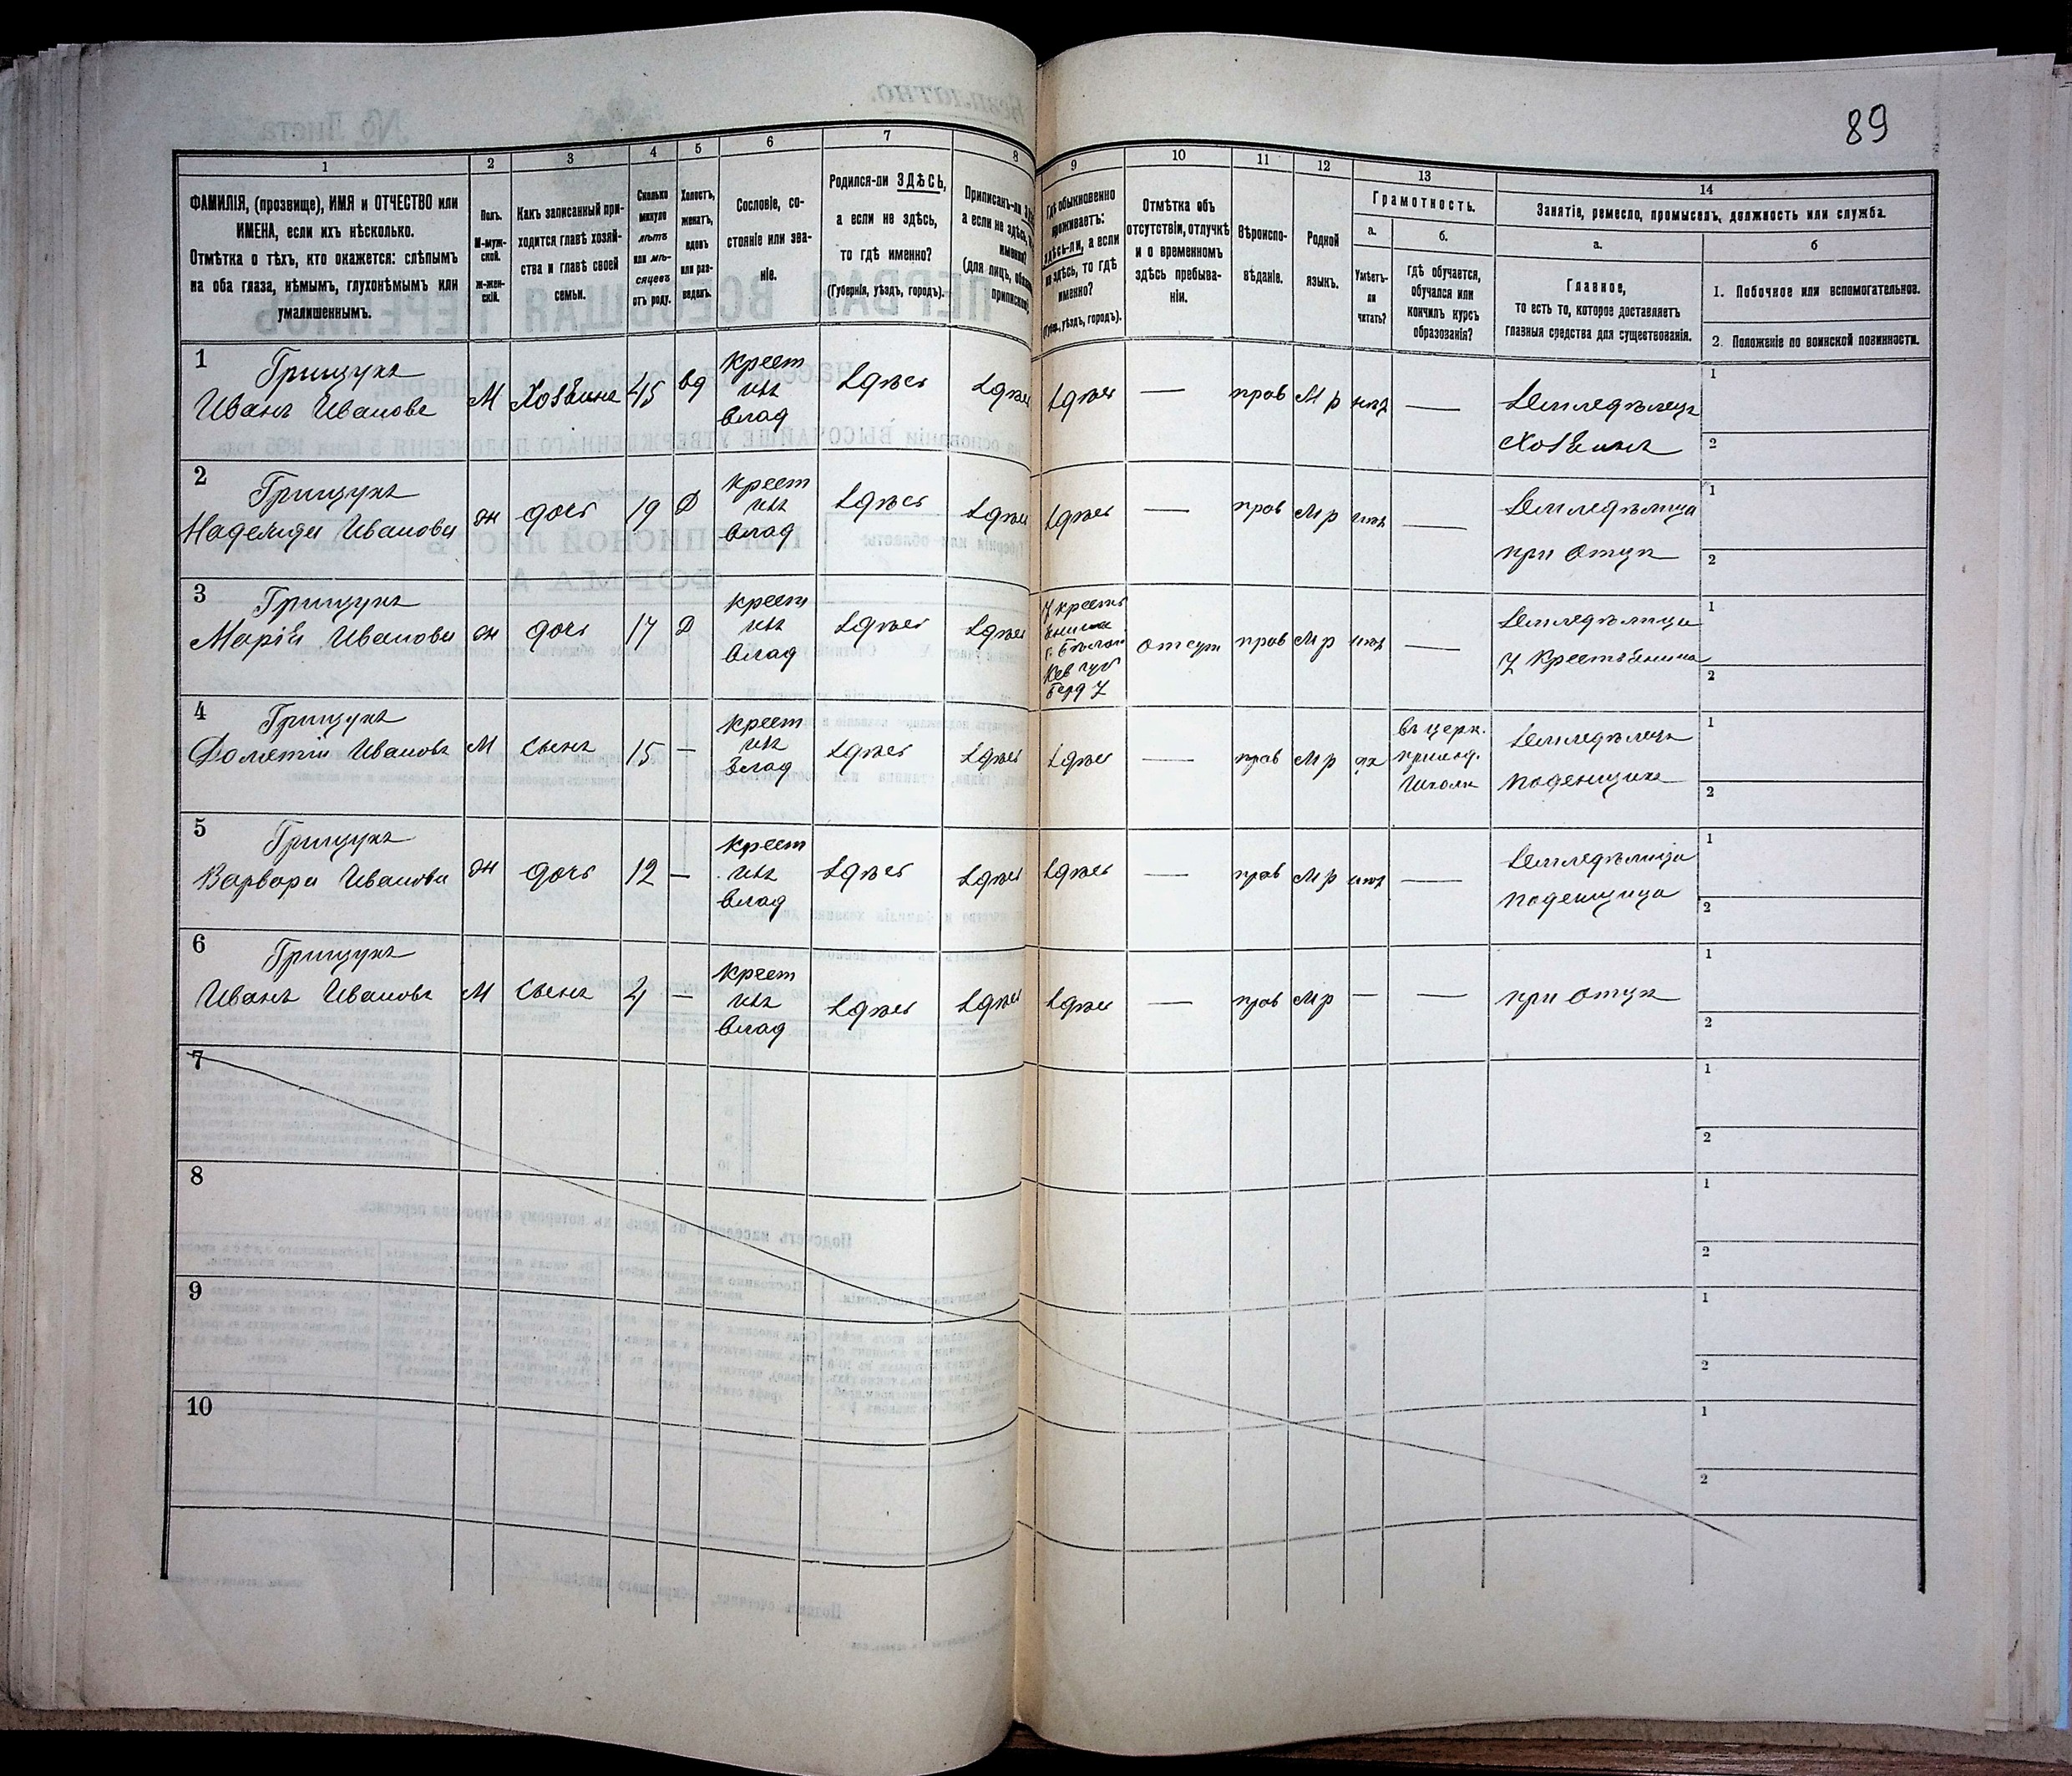 89
1 2 3 4 5 6 7 8 9 10 11 12 13 14
ФАМИЛІЯ, (прозвище), ИМЯ и ОТЧЕСТВО или
ИМЕНА, если ихъ нѣсколько.
Отмѣтка о тѣхъ, кто окажется: слѣпымъ
на оба глаза, нѣмымъ, глухонѣмымъ или
умалишеннымъ.
Полъ.
М-муж-
ской.
Ж-жен-
скій.
Какъ записанный при-
ходится главѣ хозяй-
ства и главѣ своей
семьи.
Сколько
минуло
лѣтъ
или мѣ-
сяцевъ
отъ роду.
Холостъ,
женатъ,
вдовъ
или раз-
веденъ.
Сословіе, со-
стояніе или зва-
ніе.
Родился-ли ЗДѢСЬ,
а если не здѣсь,
то гдѣ именно?
(Губернія, уѣздъ, городъ).
Приписанъ-ли
а если не здѣсь,
именно?
(для лицъ,
Гдѣ обыкновенно
проживаетъ:
здѣсь-ли, а если
не здѣсь, то гдѣ
именно?
(Губ., уѣздъ, городъ).
Отмѣтка объ
отсутствіи, отлучкѣ
и о временномъ
здѣсь пребыва-
ніи.
Вѣроиспо-
вѣданіе.
Родной
языкъ.
Грамотность.
а.
Умѣетъ-
ли
читать?
б.
Гдѣ обучается,
обучался или
кончилъ курсъ
образованія?
Занятіе, ремесло, промыселъ, должность или служба.
а.
Главное,
то есть то, которое доставляетъ
главныя средства для существованія.
б
1. Побочное или вспомогательное.
2. Положеніе по воинской повинности.
1
Грищукъ
Иванъ Ивановъ
М
Хозяинъ
45
вд
крест
изъ
влад
здѣсь
здѣсь
здѣсь
—
прав
М р
нѣтъ
—
Земледѣлецъ
Хозяинъ
1
2
2
Грищукъ
Надежда Иванова
ж
дочь
19
Д
крест
изъ
влад
здѣсь
здѣсь
здѣсь
—
прав
М р
нѣтъ
—
Земледѣлица
при Отцѣ
1
2
3
Грищукъ
Марія Иванова
ж
дочь
17
Д
крест
изъ
влад
здѣсь
здѣсь
У кресть
янина
Кев губ
Берд У
отсут
прав
М р
нѣтъ
—
Земледѣлица
У Крестьянина
1
2
4
Грищукъ
Дометій Ивановъ
М
сынъ
15
—
крест
изъ
влад
здѣсь
здѣсь
здѣсь
—
прав
М р
да
въ церк.
приход.
школѣ
Земледѣлецъ
поденщикъ
1
2
5
Грищукъ
Варвара Иванова
ж
дочь
12
—
крест
изъ
влад
здѣсь
здѣсь
здѣсь
—
прав
М р
нѣтъ
—
Земледѣлица
поденщица
1
2
6
Грищукъ
Иванъ Ивановъ
М
сынъ
4
—
крест
изъ
влад
здѣсь
здѣсь
здѣсь
—
прав
М р
—
—
при Отцѣ
1
2
7
1
2
8
1
2
9
1
2
10
1
2